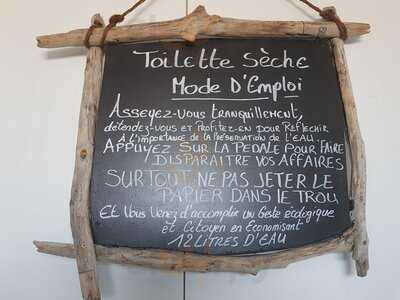 Toilette Sèche
Mode D'Emploi
Asseyez-vous tranquillement,
détendez-vous et Profitez-en pour Réflechir
à l'importance de la Préservation de l'eau.
Appuyez sur la pedale pour faire
disparaître vos affaires
Surtout ne pas jeter le
papier dans le trou
Et Vous Venez d'accomplir un Geste écologique
et Citoyen en Economisant
12 Litres d'eau